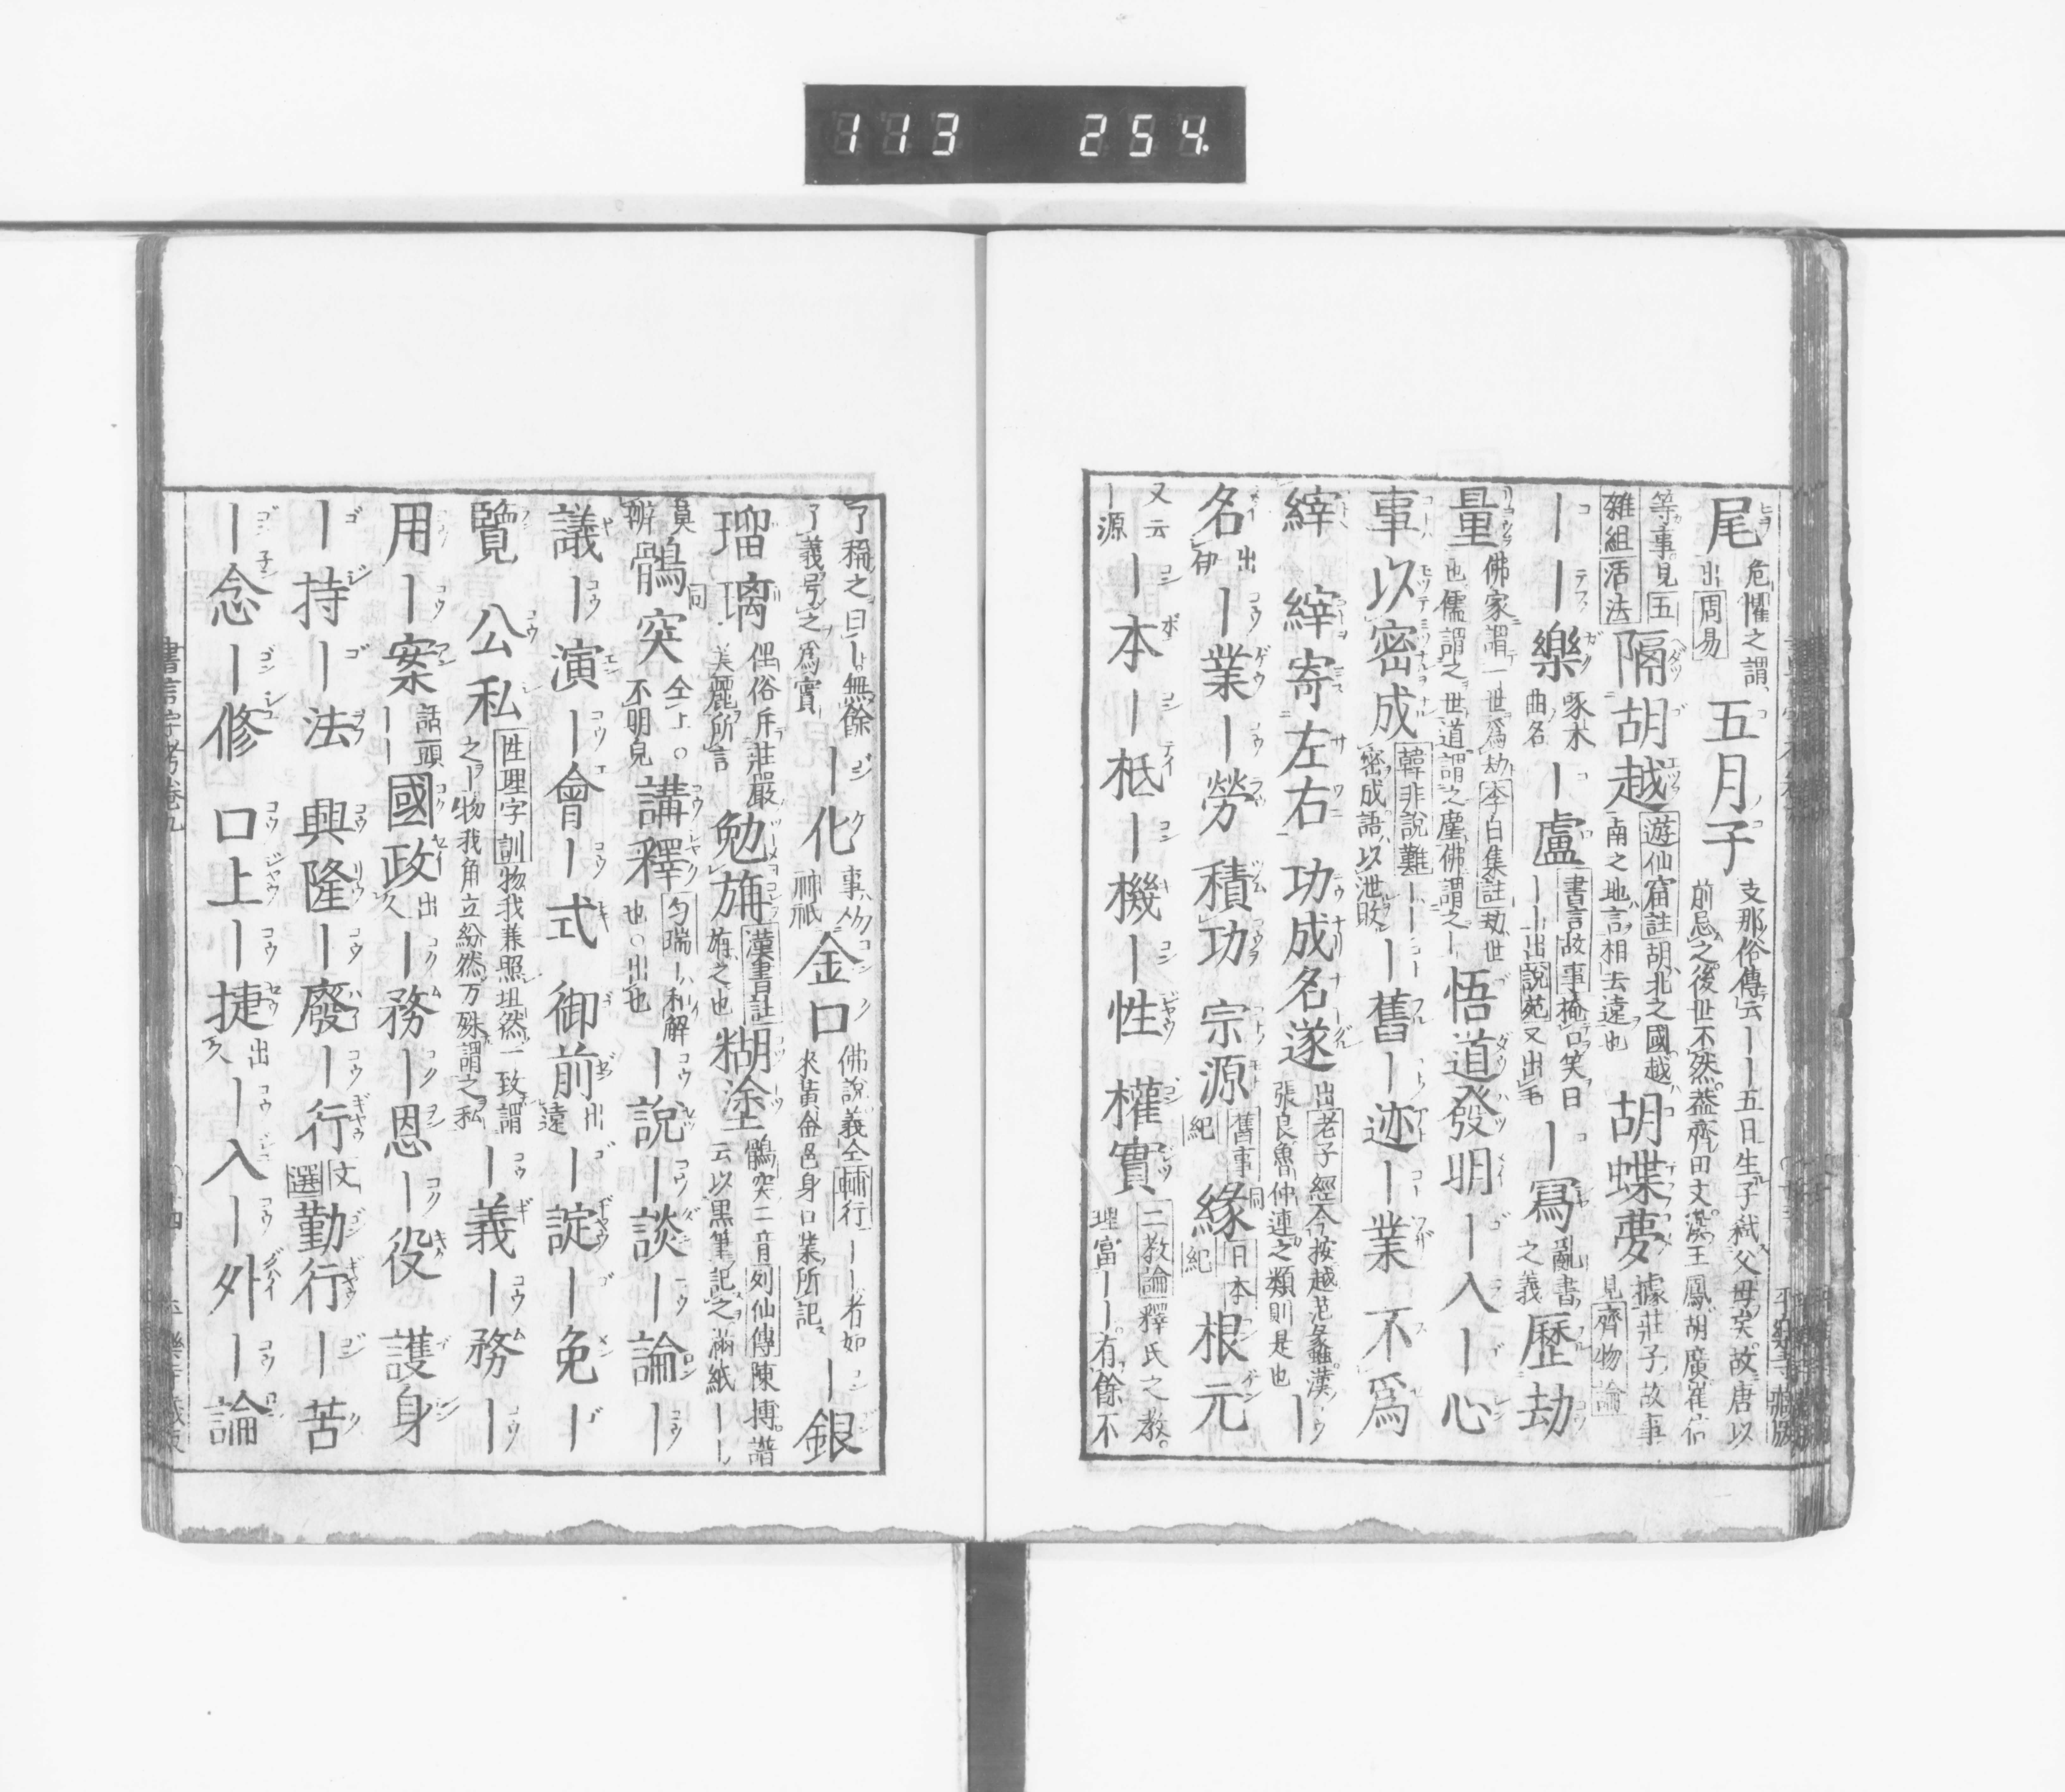 113 254.
尾 危懼之謂出周易 五月子 支那俗傳云——五日生子弑父母矣故唐以前忌之後世不然蓋齊田文漢王鳳胡廣崔信
等事見五雜組活法 隔胡越 遊仙窟註胡北之國越南之地言相去遠也 胡蝶夢 據莊子故事見齊物論
——樂 啄木曲名 —盧 書言故事掩口笑曰——出說苑又出毛 —寫 亂書之義 歷劫
量 佛家謂一世爲劫李白集註劫世也儒謂之世道謂之塵佛謂之— 悟道發明 —入—心
事以密成 韓非說難——密成語以泄敗 —舊—迹—業 不爲
縡 縡寄左右 功成名遂 出老子經今按越范蠡漢張良魯仲連之類則是也 —
名 出伊 —業—勞 積功 宗源 舊事紀 緣 同日本紀 根元
又云—源 —本—柢—機—性 權實 二教論釋氏之教。理富——有餘不
了稱之曰—無餘了義号之爲實 —化 事物神祇 金口 佛說義仝輔行——者如來黃金色身口業所記 —銀
瑠璃 俚俗斥莊嚴美麗所言 勉旃 漢書註旃之也 糊塗 鶻突二音列仙傳陳摶譜云以黒筆記之滿紙——
莫辨 鶻突 同仝上。不明皃 講釋 勻瑞—ハ和解也。出也 —說—談—論—
議—演—會—式 御前 出遠 —諚—免—
覽 公私 性理字訓物我兼照坦然一致謂之—物我角立紛然万殊謂之私 —義—務—
用—案 話頭—— 國政 出久 —務—恩—役 護身
—持—法 興隆—廢—行 文選 勤行—苦
—念—修 口上—捷 出久 —入—外—論
書言字考卷九